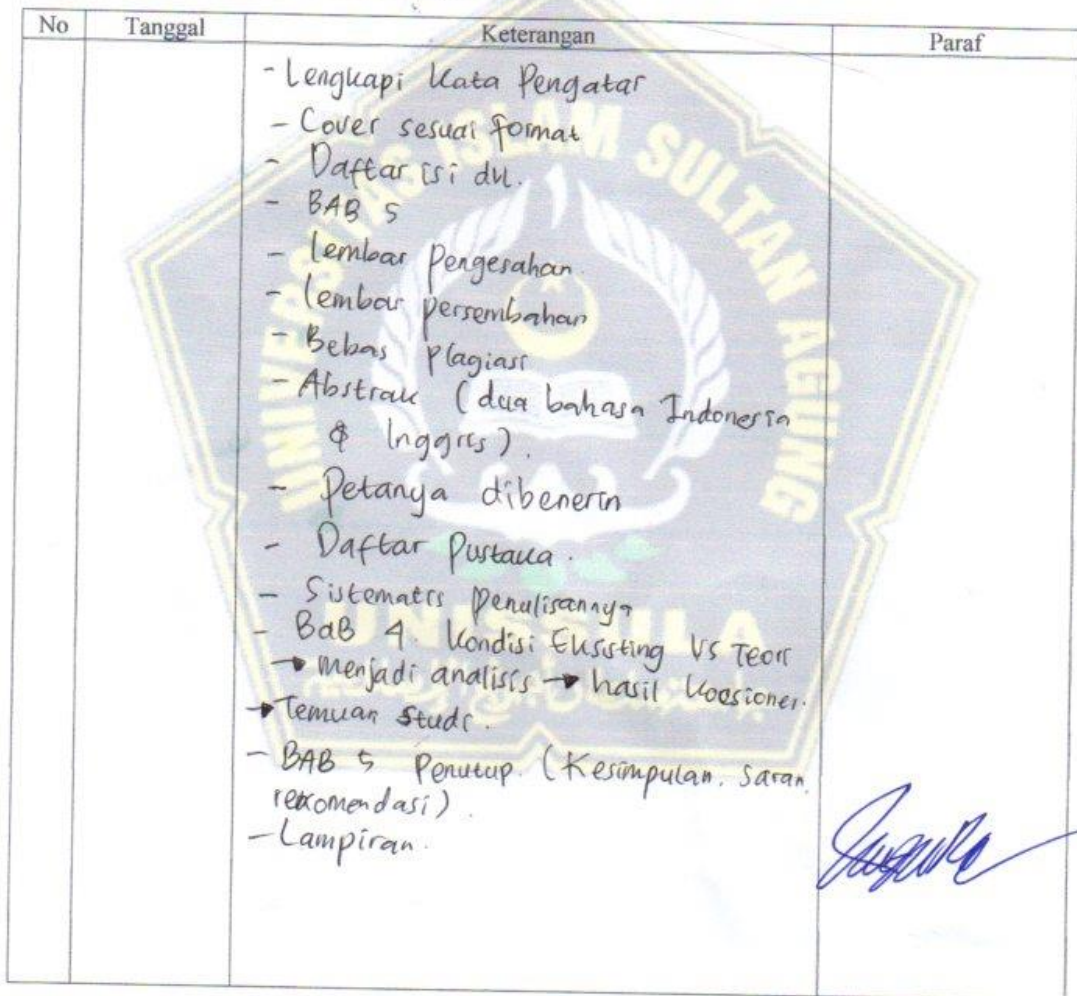 No Tanggal Keterangan Paraf
- Lengkapi Kata Pengatar
- Cover sesuai format
- Daftar isi dll.
- BAB 5
- lembar Pengesahan.
- lembar persembahan
- Bebas plagiasi
- Abstrak (dua bahasa Indonesia
& Inggris).
- Petanya dibenerin
- Daftar Pustaka.
- Sistematis Penulisannya
- BaB 4. Kondisi Eksisting Vs Teori
→ menjadi analisis → hasil koesioner.
→ Temuan Studi.
- BAB 5 Penutup. (Kesimpulan. Saran.
rekomendasi).
- Lampiran.
UNIVERSITAS ISLAM SULTAN AGUNG
UNISSULA